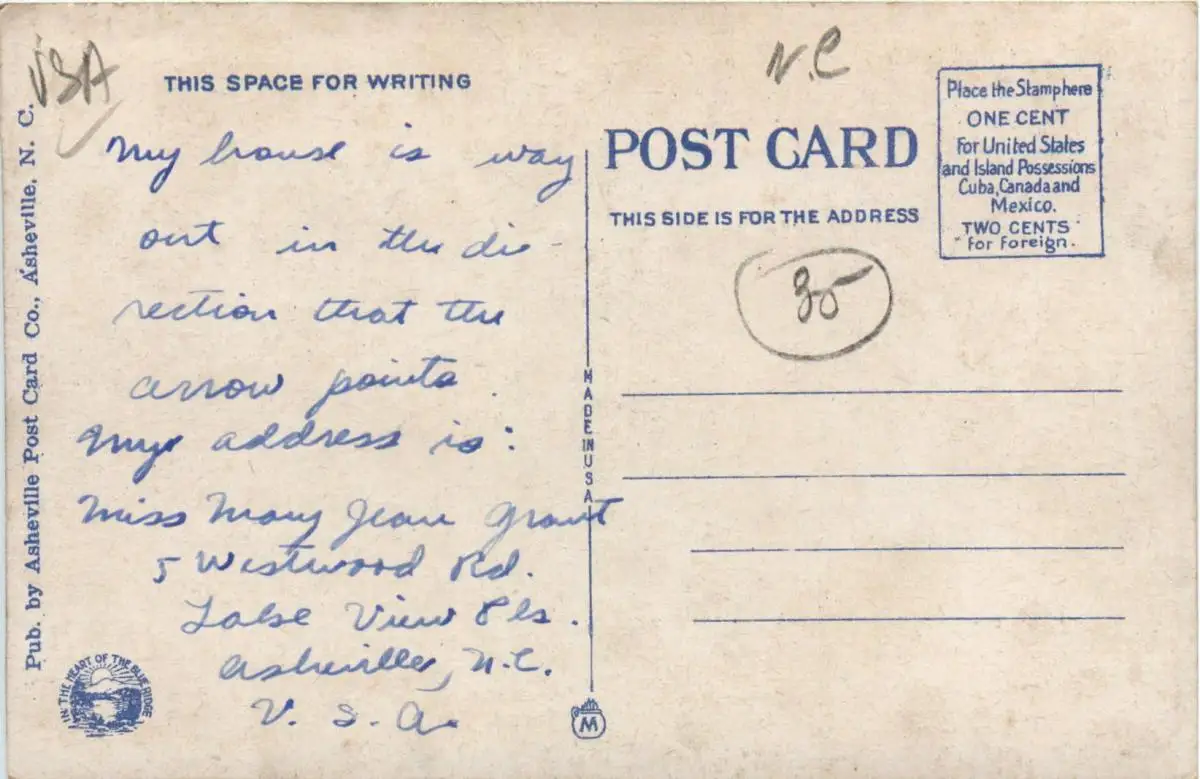 USA
N.C
THIS SPACE FOR WRITING
My house is way
out in the di-
rection that the
arrow points.
My address is:
Miss Mary Jean Grant
5 Westwood Rd.
Lake View Pk.
Asheville, N.C.
U. S. A.
Pub. by Asheville Post Card Co., Asheville, N. C.
IN THE HEART OF THE BLUE RIDGE
MADE IN USA
M
POST CARD
THIS SIDE IS FOR THE ADDRESS
35
Place the Stamp here
ONE CENT
For United States
and Island Possessions
Cuba, Canada and
Mexico.
TWO CENTS
for Foreign.